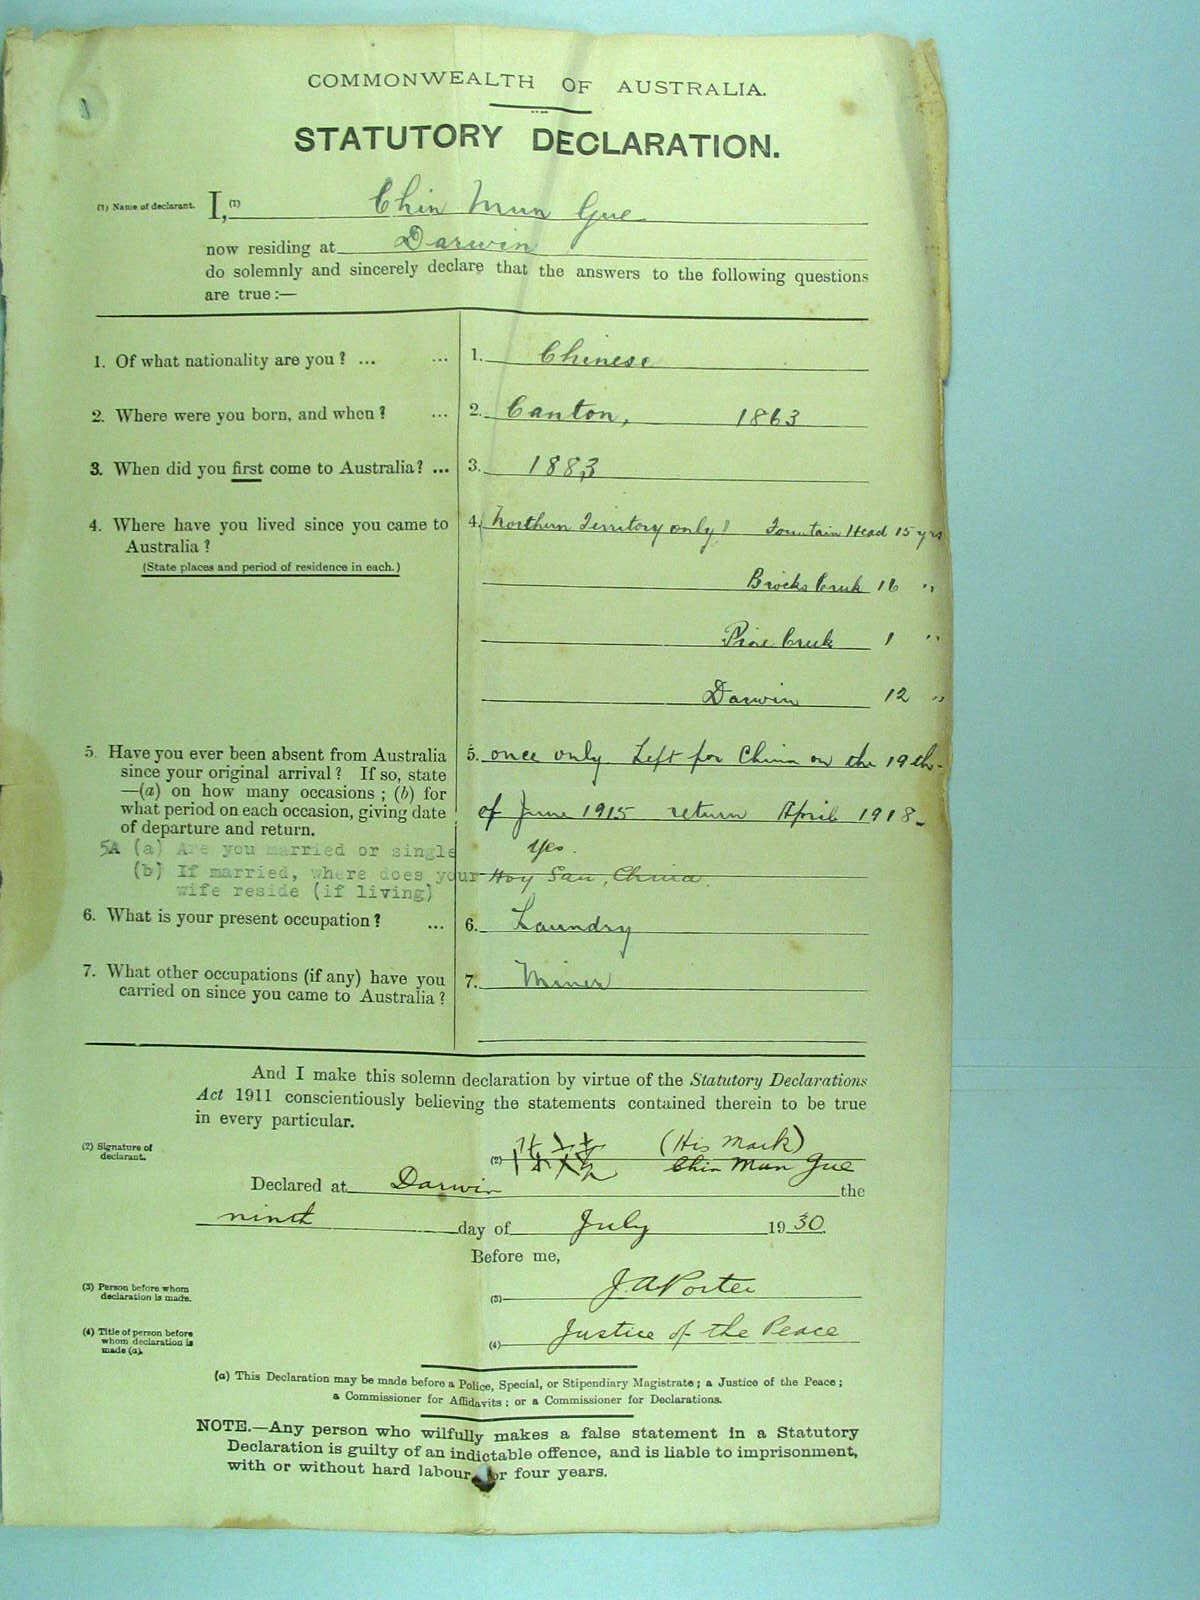 COMMONWEALTH OF AUSTRALIA.
STATUTORY DECLARATION.
(1) Name of declarant. I, (1) Chin Mun Gue
now residing at Darwin
do solemnly and sincerely declare that the answers to the following questions
are true:—
1. Of what nationality are you? ... ... 1. Chinese
2. Where were you born, and when? ... 2. Canton, 1863
3. When did you first come to Australia? ... 3. 1883
4. Where have you lived since you came to 4. Northern Territory only! Fountain Head 15 yrs
Australia?
(State places and period of residence in each.)
Brocks Creek 16 "
Pine Creek 1 "
Darwin 12 "
5. Have you ever been absent from Australia 5. once only Left for China on the 19th
since your original arrival? If so, state
—(a) on how many occasions; (b) for
what period on each occasion, giving date of June 1915 return April 1918
of departure and return.
5A (a) Are you married or single Yes.
(b) If married, where does your Hoy San, China.
wife reside (if living)
6. What is your present occupation? ... 6. Laundry
7. What other occupations (if any) have you 7. Miner
carried on since you came to Australia?
And I make this solemn declaration by virtue of the Statutory Declarations
Act 1911 conscientiously believing the statements contained therein to be true
in every particular.
(2) Signature of
declarant.
(His Mark)
(2) Chin Mun Gue
Declared at Darwin the
ninth day of July 1930
Before me,
(3) Person before whom
declaration is made.
(3) J. A. Porter
(4) Title of person before
whom declaration is
made (a).
(4) Justice of the Peace
(a) This Declaration may be made before a Police, Special, or Stipendiary Magistrate; a Justice of the Peace;
a Commissioner for Affidavits; or a Commissioner for Declarations.
NOTE.—Any person who wilfully makes a false statement in a Statutory
Declaration is guilty of an indictable offence, and is liable to imprisonment,
with or without hard labour, for four years.